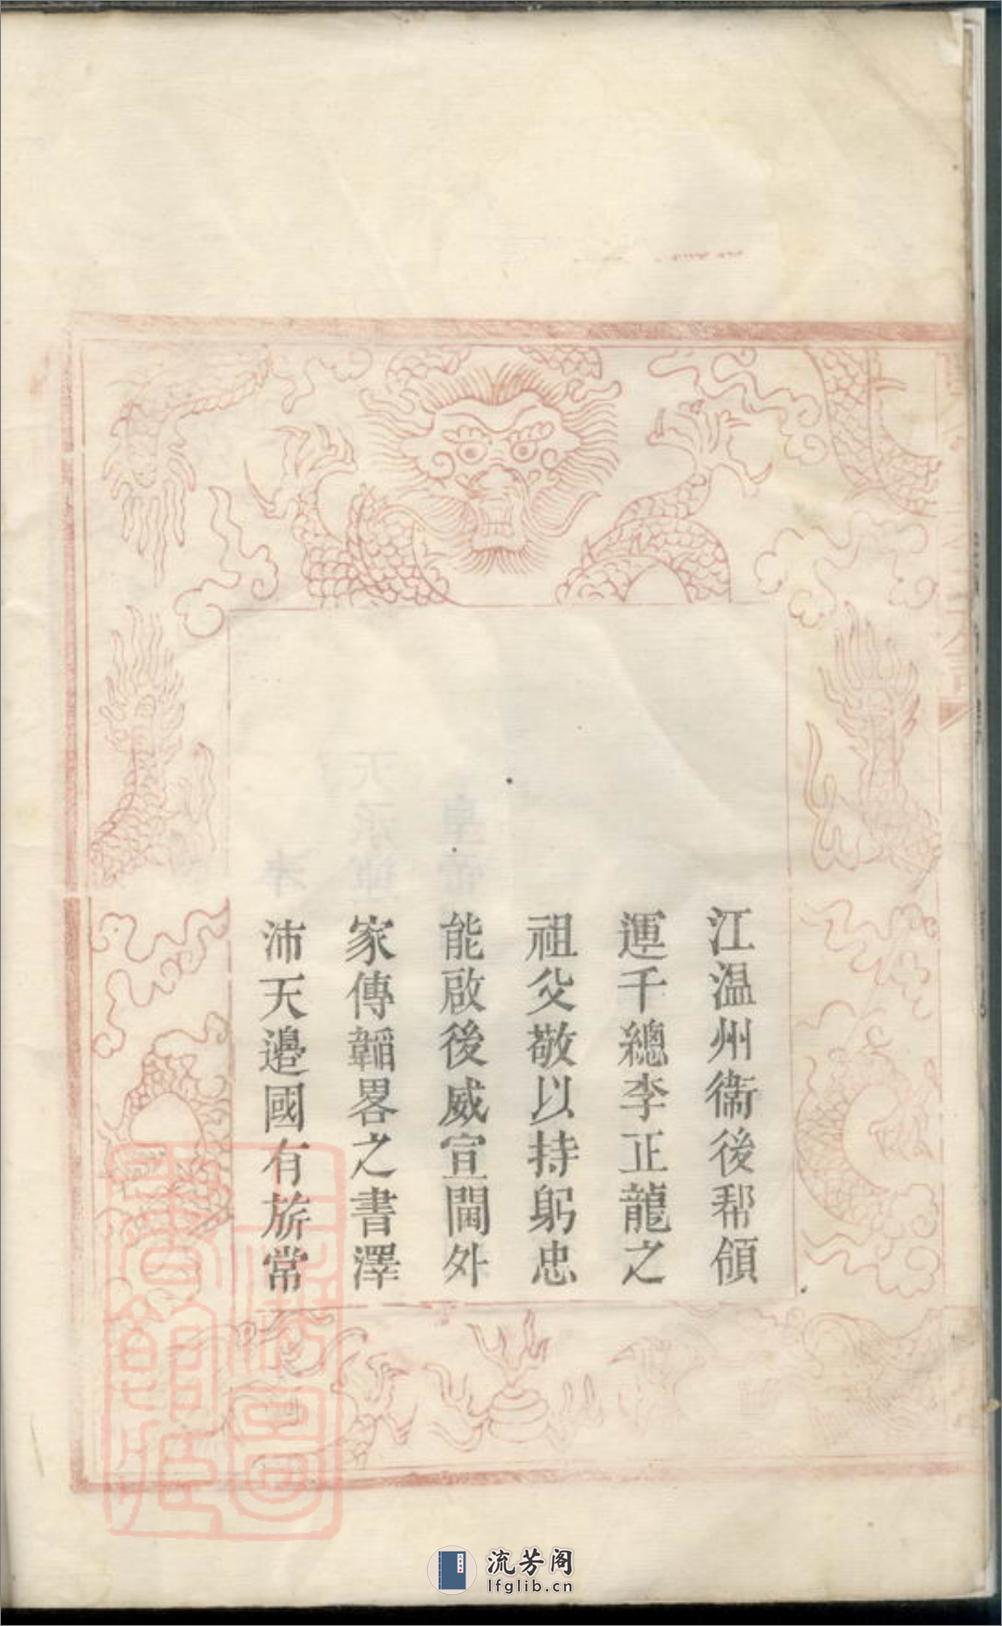 江温州衞後帮領
運千總李正龍之
祖父敬以持躬忠
能啟後威宣閫外
家傳韜畧之書澤
沛天邉國有旂常
上海圖書館藏
流芳阁
lfglib.cn